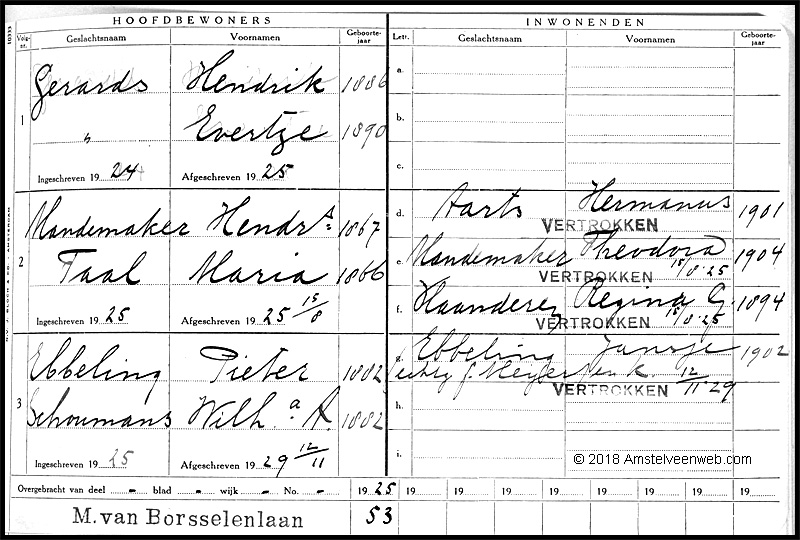 HOOFDBEWONERS
Volg-nr.
Geslachtsnaam
Voornamen
Geboorte-jaar
1
Gerards Hendrik 1886
" Evertze 1890
Ingeschreven 19 24 Afgeschreven 19 25
2
Mandemaker Hendrs 1867
Taal Maria 1866
Ingeschreven 19 25 Afgeschreven 19 25 15/8
3
Ebbeling Pieter 1882
Schoumans Wilha A. 1882
Ingeschreven 19 25 Afgeschreven 19 29 12/11
INWONENDEN
Lett.
Geslachtsnaam
Voornamen
Geboorte-jaar
a.
b.
c.
d. Aarts Hermanus 1901
VERTROKKEN
e. Mandemaker Theodora 1904
VERTROKKEN 15/8 25
f. Haanderez Regina G. 1894
VERTROKKEN 15/8 25
g. Ebbeling Jansje 1902
12/11 29
VERTROKKEN
h.
i.
© 2018 Amstelveenweb.com
Overgebracht van deel - blad - wijk - No. - 19 25 19 19 19 19 19 19 19
M. van Borsselenlaan 53